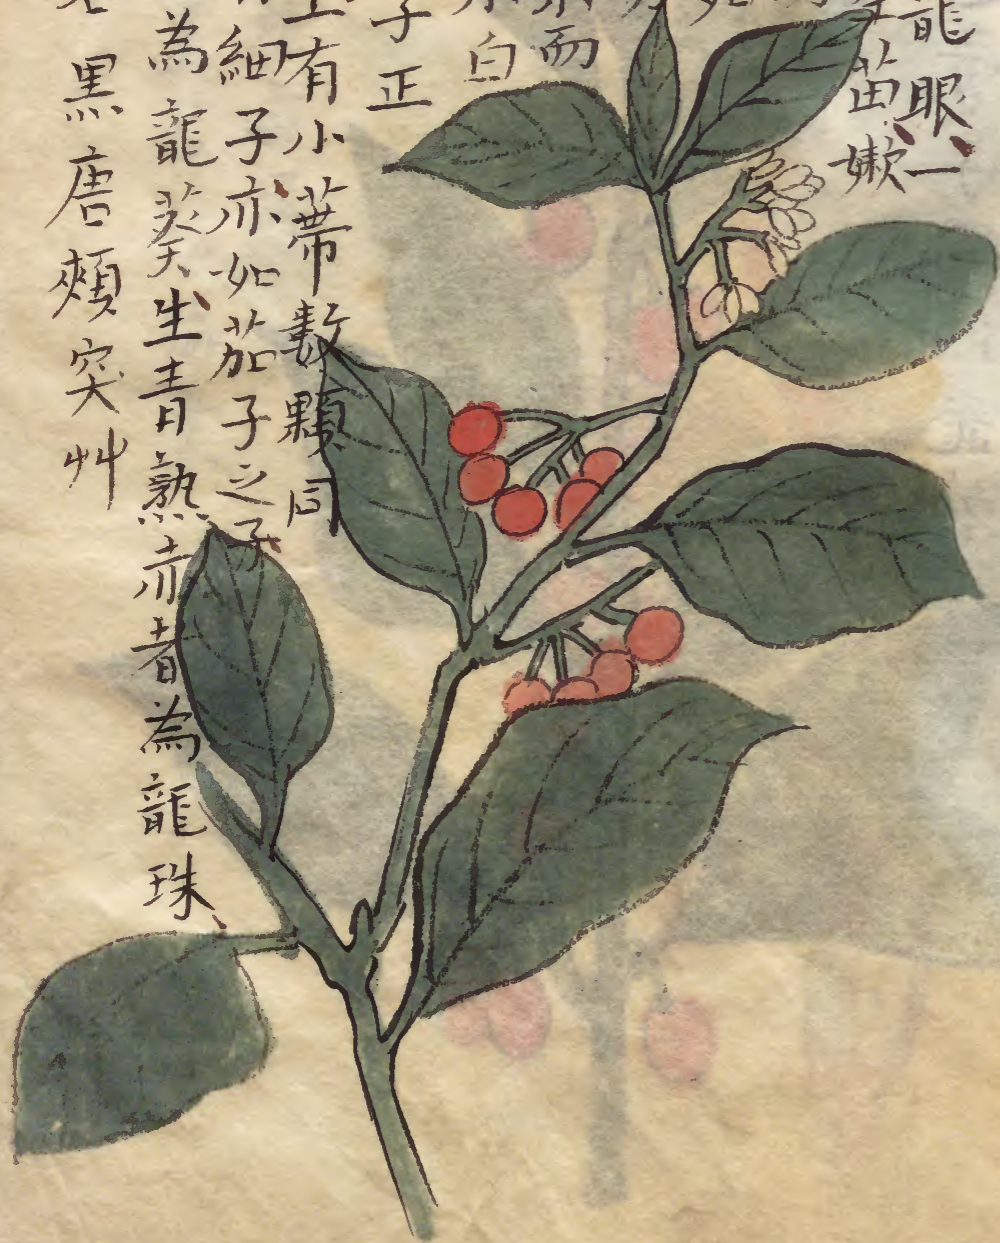 龍眼一
苗嫩
而
白
子正
上有小蒂數顆同
細子亦如茄子之子
為龍葵生青熟赤者為龍珠
黑唐頰突艸